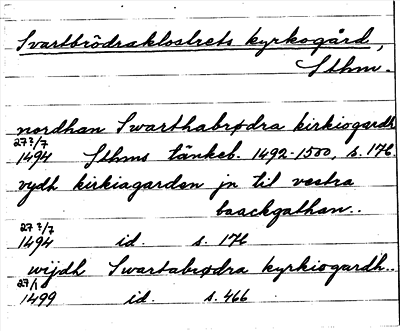 Svartbrödraklostrets kyrkogård,
Sthm.
nordhan Swarthabrødra kirkiogardh
27?/7
1494 Sthms tänkeb. 1492-1500, s. 176.
vydh kirkiagarden jn til vestra
baackgathan..
27?/7
1494 id. s. 176
wijdh Swartabrødra kyrkiogardh..
27/1
1499 id. s. 466